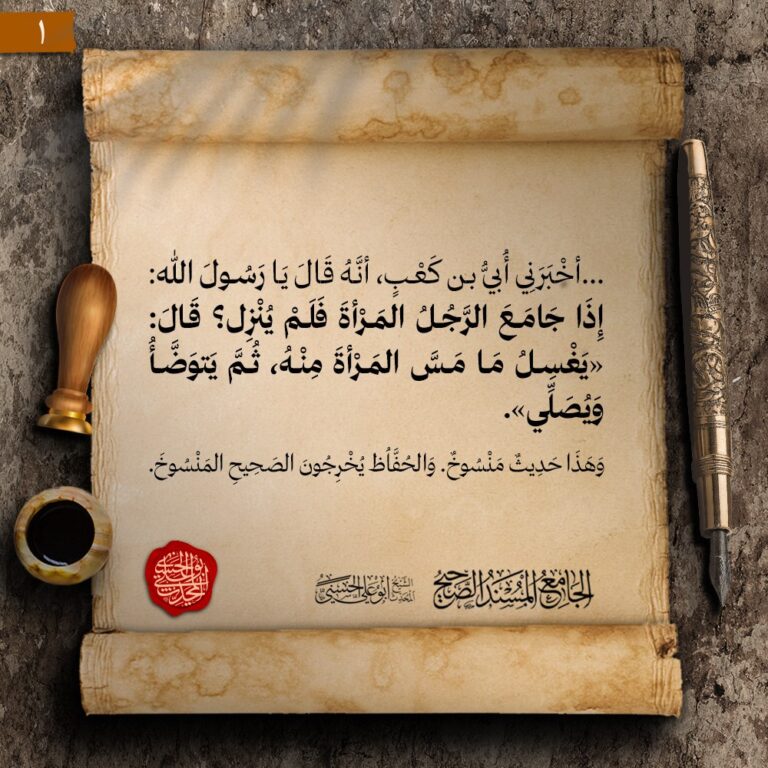 ١
...أخْبَرَنِي أُبيُّ بن كَعْبٍ، أنَّهُ قَالَ يَا رَسُولَ الله:
إِذَا جَامَعَ الرَّجُلُ المَرْأةَ فَلَمْ يُنْزِل؟ قَالَ:
«يَغْسِلُ مَا مَسَّ المَرْأةَ مِنْهُ، ثُمَّ يَتوَضَّأُ
وَيُصَلِّي».
وَهَذَا حَدِيثٌ مَنْسُوخٌ. وَالحُفَّاُظ يُخْرِجُونَ الصَحِيحِ المَنْسُوخَ.
الجَامِعُ المُسْنَدُ الصَّحِيحُ
الشيخ المحدث أبو علي الحسيني